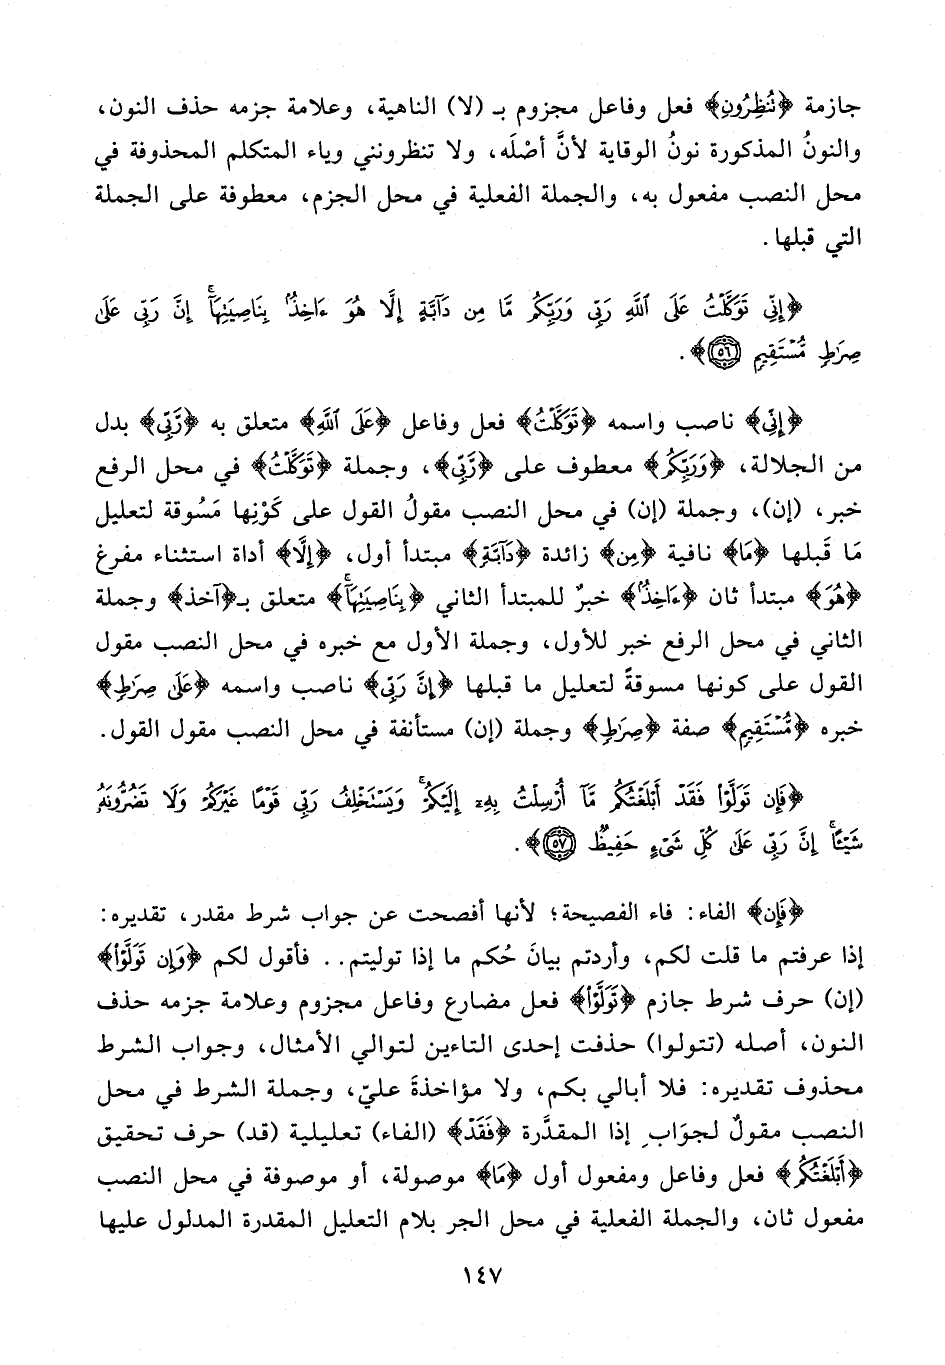 جازمة ﴿تُنْظِرُونِ﴾ فعل وفاعل مجزوم بـ (لا) الناهية، وعلامة جزمه حذف النون،
والنونُ المذكورة نونُ الوقاية لأنَّ أصْلَه، ولا تنظرونني وياء المتكلم المحذوفة في
محل النصب مفعول به، والجملة الفعلية في محل الجزم، معطوفة على الجملة
التي قبلها.
﴿إِنِّي تَوَكَّلْتُ عَلَى ٱللَّهِ رَبِّي وَرَبِّكُم مَّا مِن دَآبَّةٍ إِلَّا هُوَ ءَاخِذٌۢ بِنَاصِيَتِهَآۚ إِنَّ رَبِّي عَلَىٰ
صِرَٰطٍ مُّسْتَقِيمٍ ۝٥٦﴾.
﴿إِنِّي﴾ ناصب واسمه ﴿تَوَكَّلْتُ﴾ فعل وفاعل ﴿عَلَى ٱللَّهِ﴾ متعلق به ﴿رَبِّي﴾ بدل
من الجلالة، ﴿وَرَبِّكُم﴾ معطوف على ﴿رَبِّي﴾، وجملة ﴿تَوَكَّلْتُ﴾ في محل الرفع
خبر، (إن)، وجملة (إن) في محل النصب مقولُ القول على كَوْنِها مَسُوقة لتعليل
مَا قَبلها ﴿مَا﴾ نافية ﴿مِن﴾ زائدة ﴿دَآبَّةٍ﴾ مبتدأ أول، ﴿إِلَّا﴾ أداة استثناء مفرغ
﴿هُوَ﴾ مبتدأ ثان ﴿ءَاخِذٌۢ﴾ خبرٌ للمبتدأ الثاني ﴿بِنَاصِيَتِهَآۚ﴾ متعلق بـ﴿آخذ﴾ وجملة
الثاني في محل الرفع خبر للأول، وجملة الأول مع خبره في محل النصب مقول
القول على كونها مسوقةً لتعليل ما قبلها ﴿إِنَّ رَبِّي﴾ ناصب واسمه ﴿عَلَىٰ صِرَٰطٍ﴾
خبره ﴿مُّسْتَقِيمٍ﴾ صفة ﴿صِرَٰطٍ﴾ وجملة (إن) مستأنفة في محل النصب مقول القول.
﴿فَإِن تَوَلَّوْا۟ فَقَدْ أَبْلَغْتُكُم مَّآ أُرْسِلْتُ بِهِۦٓ إِلَيْكُمْۚ وَيَسْتَخْلِفُ رَبِّي قَوْمًا غَيْرَكُمْ وَلَا تَضُرُّونَهُۥ
شَيْـًٔاۚ إِنَّ رَبِّي عَلَىٰ كُلِّ شَيْءٍ حَفِيظٌ ۝٥٧﴾.
﴿فَإِن﴾ الفاء: فاء الفصيحة؛ لأنها أفصحت عن جواب شرط مقدر، تقديره:
إذا عرفتم ما قلت لكم، وأردتم بيانَ حُكم ما إذا توليتم.. فأقول لكم ﴿وَإِن تَوَلَّوْا۟﴾
(إن) حرف شرط جازم ﴿تَوَلَّوْا۟﴾ فعل مضارع وفاعل مجزوم وعلامة جزمه حذف
النون، أصله (تتولوا) حذفت إحدى التاءين لتوالي الأمثال، وجواب الشرط
محذوف تقديره: فلا أبالي بكم، ولا مؤاخذةَ عليّ، وجملة الشرط في محل
النصب مقولٌ لجوَاب إذا المقدَّرة ﴿فَقَدْ﴾ (الفاء) تعليلية (قد) حرف تحقيق
﴿أَبْلَغْتُكُم﴾ فعل وفاعل ومفعول أول ﴿مَا﴾ موصولة، أو موصوفة في محل النصب
مفعول ثان، والجملة الفعلية في محل الجر بلام التعليل المقدرة المدلول عليها
١٤٧